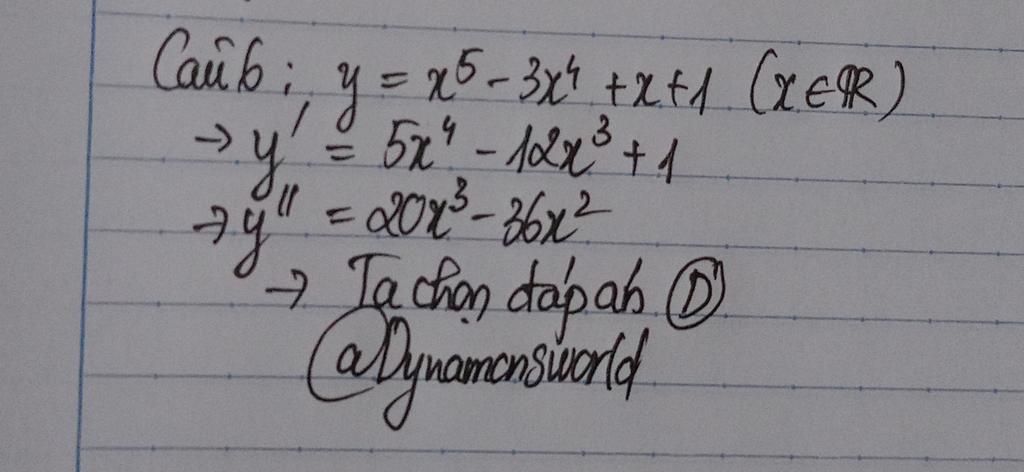 Câu 6: y = x⁵ - 3x⁴ + x + 1 (x ∈ ℝ)
→ y' = 5x⁴ - 12x³ + 1
→ y'' = 20x³ - 36x²
→ Ta chọn đáp án Ⓓ
@Dynamonsworld